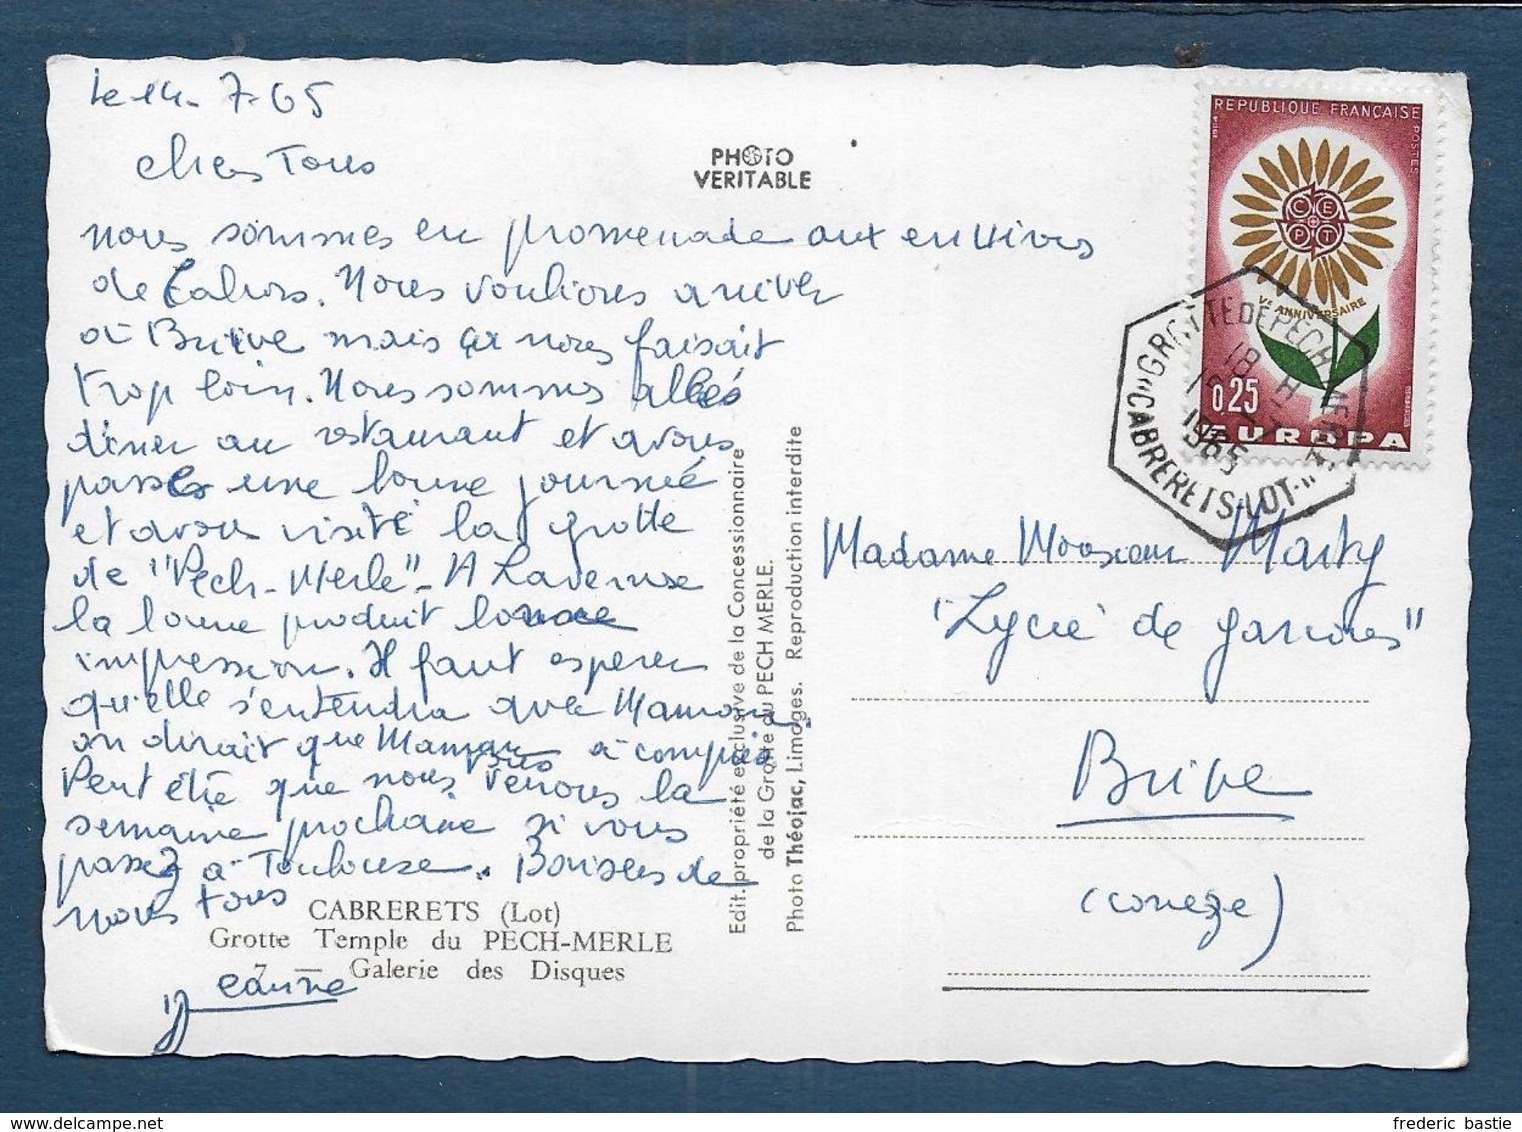 Le 14-7-65
Chers Tous
nous sommes en promenade aux environs
de Cahors. Nous voulions arriver
à Brive mais ça nous faisait
trop loin. Nous sommes allés
diner au restaurant et avons
passés une bonne journée
et avons visité la grotte
de "Pech-Merle" - A
la bonne produit bonne
impression. Il faut esperer
qu'elle s'entendra avec Maman.
on dirait que Maman a compris
Peut être que nous vous verrons la
semaine prochaine si vous
passez à Toulouse. Bonises de
nous tous
Jeanne
CABRERETS (Lot)
Grotte Temple du PECH-MERLE
7 — Galerie des Disques
PHOTO
VERITABLE
Edit. propriété exclusive de la Concessionnaire
de la Grotte du PECH MERLE.
Photo Théojac, Limoges. Reproduction interdite
REPUBLIQUE FRANÇAISE
POSTES
1964
C E P T
Ve ANNIVERSAIRE
0,25
EUROPA
GROTTE DE PECH MERLE
18 H
1965
"CABRERETS-LOT-"
Madame Monsieur Marty
"Lycée de garcons"
Brive
(Correze)
frederic bastie